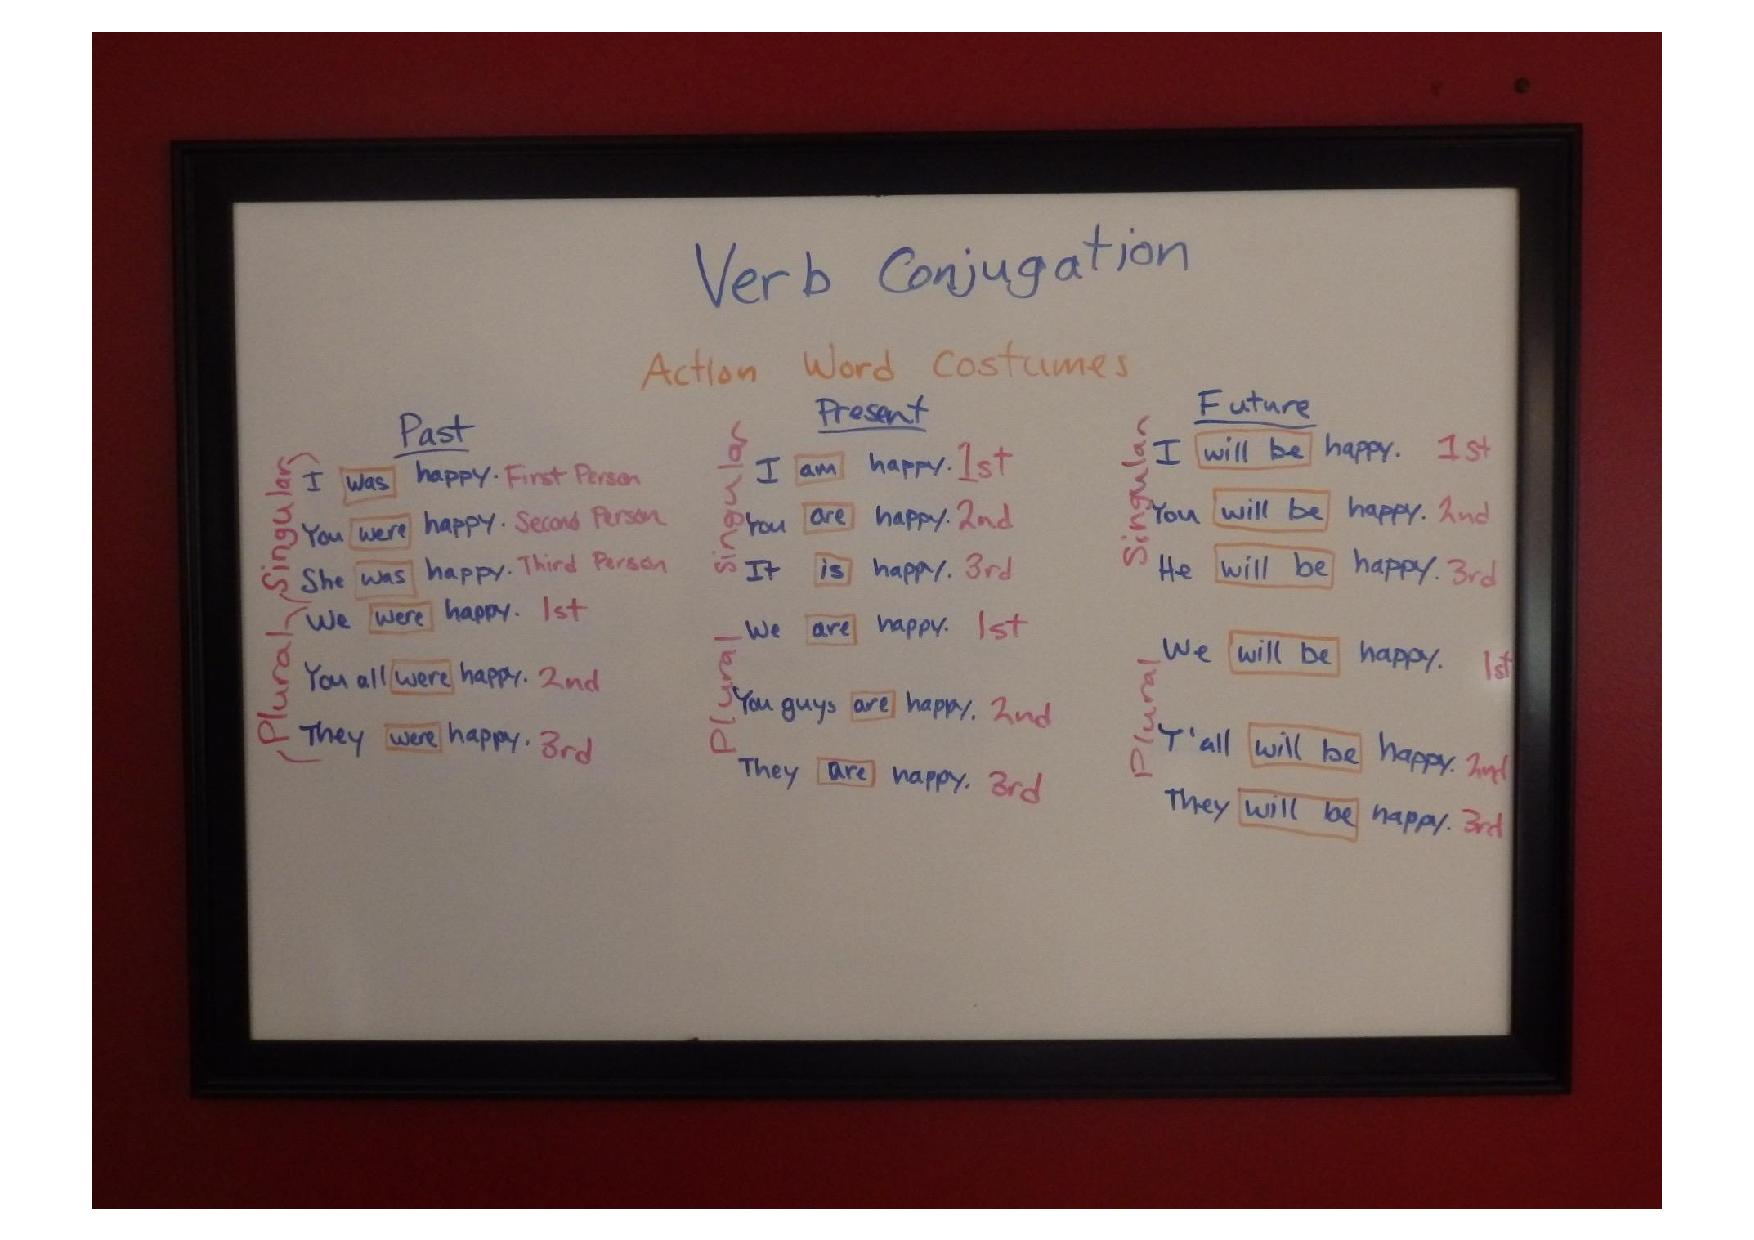 Verb Conjugation
Action Word Costumes
Past
Singular
I was happy. First Person
You were happy. Second Person
She was happy. Third Person
Plural
We were happy. 1st
You all were happy. 2nd
They were happy. 3rd
Present
Singular
I am happy. 1st
You are happy. 2nd
It is happy. 3rd
Plural
We are happy. 1st
You guys are happy. 2nd
They are happy. 3rd
Future
Singular
I will be happy. 1st
You will be happy. 2nd
He will be happy. 3rd
Plural
We will be happy. 1st
Y'all will be happy. 2nd
They will be happy. 3rd